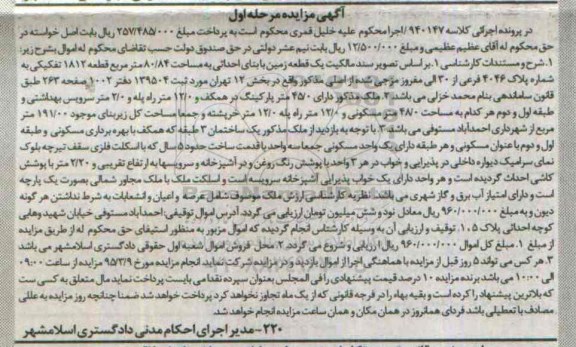 آگهی مزایده مرحله اول
در پرونده اجرائی کلاسه ۹۴۰۱۴۷/اجرا محکوم علیه خلیل قمری محکوم است به پرداخت مبلغ ۲۵۷/۴۸۵/۰۰۰ ریال بابت اصل خواسته در
حق محکوم له آقای عظیم عظیمی و مبلغ ۱۲/۵۰۰/۰۰۰ ریال بابت نیم عشر دولتی در حق صندوق دولت حسب تقاضای محکوم له اموال بشرح زیر:
۱. شرح و مستندات کارشناسی ۱. بر اساس تصویر سند مالکیت یک قطعه زمین با بنای احداثی به مساحت ۸۰/۸۴ متر مربع قطعه ۱۸۱۲ تفکیکی به
شماره پلاک ۴۰۴۶ فرعی از ۳۰ الی مفروز مرجی شده از اصلی مذکور واقع در بخش ۱۲ تهران مورد ثبت ۱۳۹۵۰۴ دفتر ۱۰۰۲ صفحه ۲۶۳ طبق
قانون ساماندهی بنام محمد خزلی می باشد. ۲. ملک مذکور دارای ۴۵/۰ متر پارکینگ در همکف و ۱۲/۰ متر راه پله و ۲/۰ متر سرویس بهداشتی و
طبقه اول و دوم هر کدام به مساحت ۴۸۰ متر مسکونی و ۱۲/۰ متر راه پله و ۱۲/۰ متر خرپشته و جمعا مساحت کل زیربنای موجود ۱۹۱/۰۰ متر
مربع از شهرداری احمدآباد مستوفی می باشد ۳. با توجه به بازدید از ملک مذکور یک ساختمان ۳ طبقه که همکف با بهره برداری مسکونی و طبقه
اول و دوم با عنوان مسکونی و هر طبقه دارای یک واحد مسکونی جمعا سه واحد با قدمت ساخت حدود ۵ سال که با اسکلت فلزی سقف تیرچه بلوک
نمای سرامیک دیواره داخلی در پذیرایی و خواب در هر ۳ واحد با پوشش رنگ روغن و در آشپزخانه و سرویسها به ارتفاع تقریبی و ۲/۲۰ متر با پوشش
کاشی احداث گردیده است و هر واحد دارای یک خواب پذیرایی آشپزخانه سرویسه است و اسکلت ملک با ملک مجاور شمالی بصورت یک پارچه
است و دارای امتیاز آب برق و گاز شهری می باشد. نظریه کارشناسی ارزش ملک موصوف شامل عرصه و اعیان و انشعابات به شرط نداشتن هر گونه
دیون و به مبلغ ۹۶۰/۰۰۰/۰۰۰ ریال معادل نود و شش میلیون تومان ارزیابی می گردد. آدرس اموال توقیفی: احمدآباد مستوفی خیابان شهید وهابی
کوچه احداثی پلاک ۱۰۵. توقیف و ارزیابی آن به وسیله کارشناس انجام گردیده که اموال مزبور به منظور استیفای حق محکوم له از طریق مزایده
از مبلغ ۱. مبلغ کل اموال ۹۶۰/۰۰۰/۰۰۰ ریال ارزیابی و شروع می گردد. ۲. محل فروش اموال شعبه اول حقوقی دادگستری اسلامشهر می باشد
۳. هر کس می تواند ۵ روز قبل از مزایده با هماهنگی اجرا از اموال بازدید و در مزایده شرکت نماید. انجام مزایده مورخ ۹۵/۳/۹ مزایده از ساعت ۰۹:۰۰
الی ۱۰:۰۰ می باشد برنده مزایده ۱۰ درصد قیمت پیشنهادی را فی المجلس بعنوان سپرده نقدا می بایست پرداخت نماید مال متعلق به کسی است
که بالاترین پیشنهاد را کرده است و بقیه بهاء را در فرجه قانونی که از یک ماه تجاوز نخواهد کرد پرداخت خواهد شد ضمنا چنانچه روز مزایده به عللی
مصادف با تعطیلی باشد فردای همانروز در همان مکان و همان ساعت مزایده انجام خواهد شد.
۲۲۰-مدیر اجرای احکام مدنی دادگستری اسلامشهر